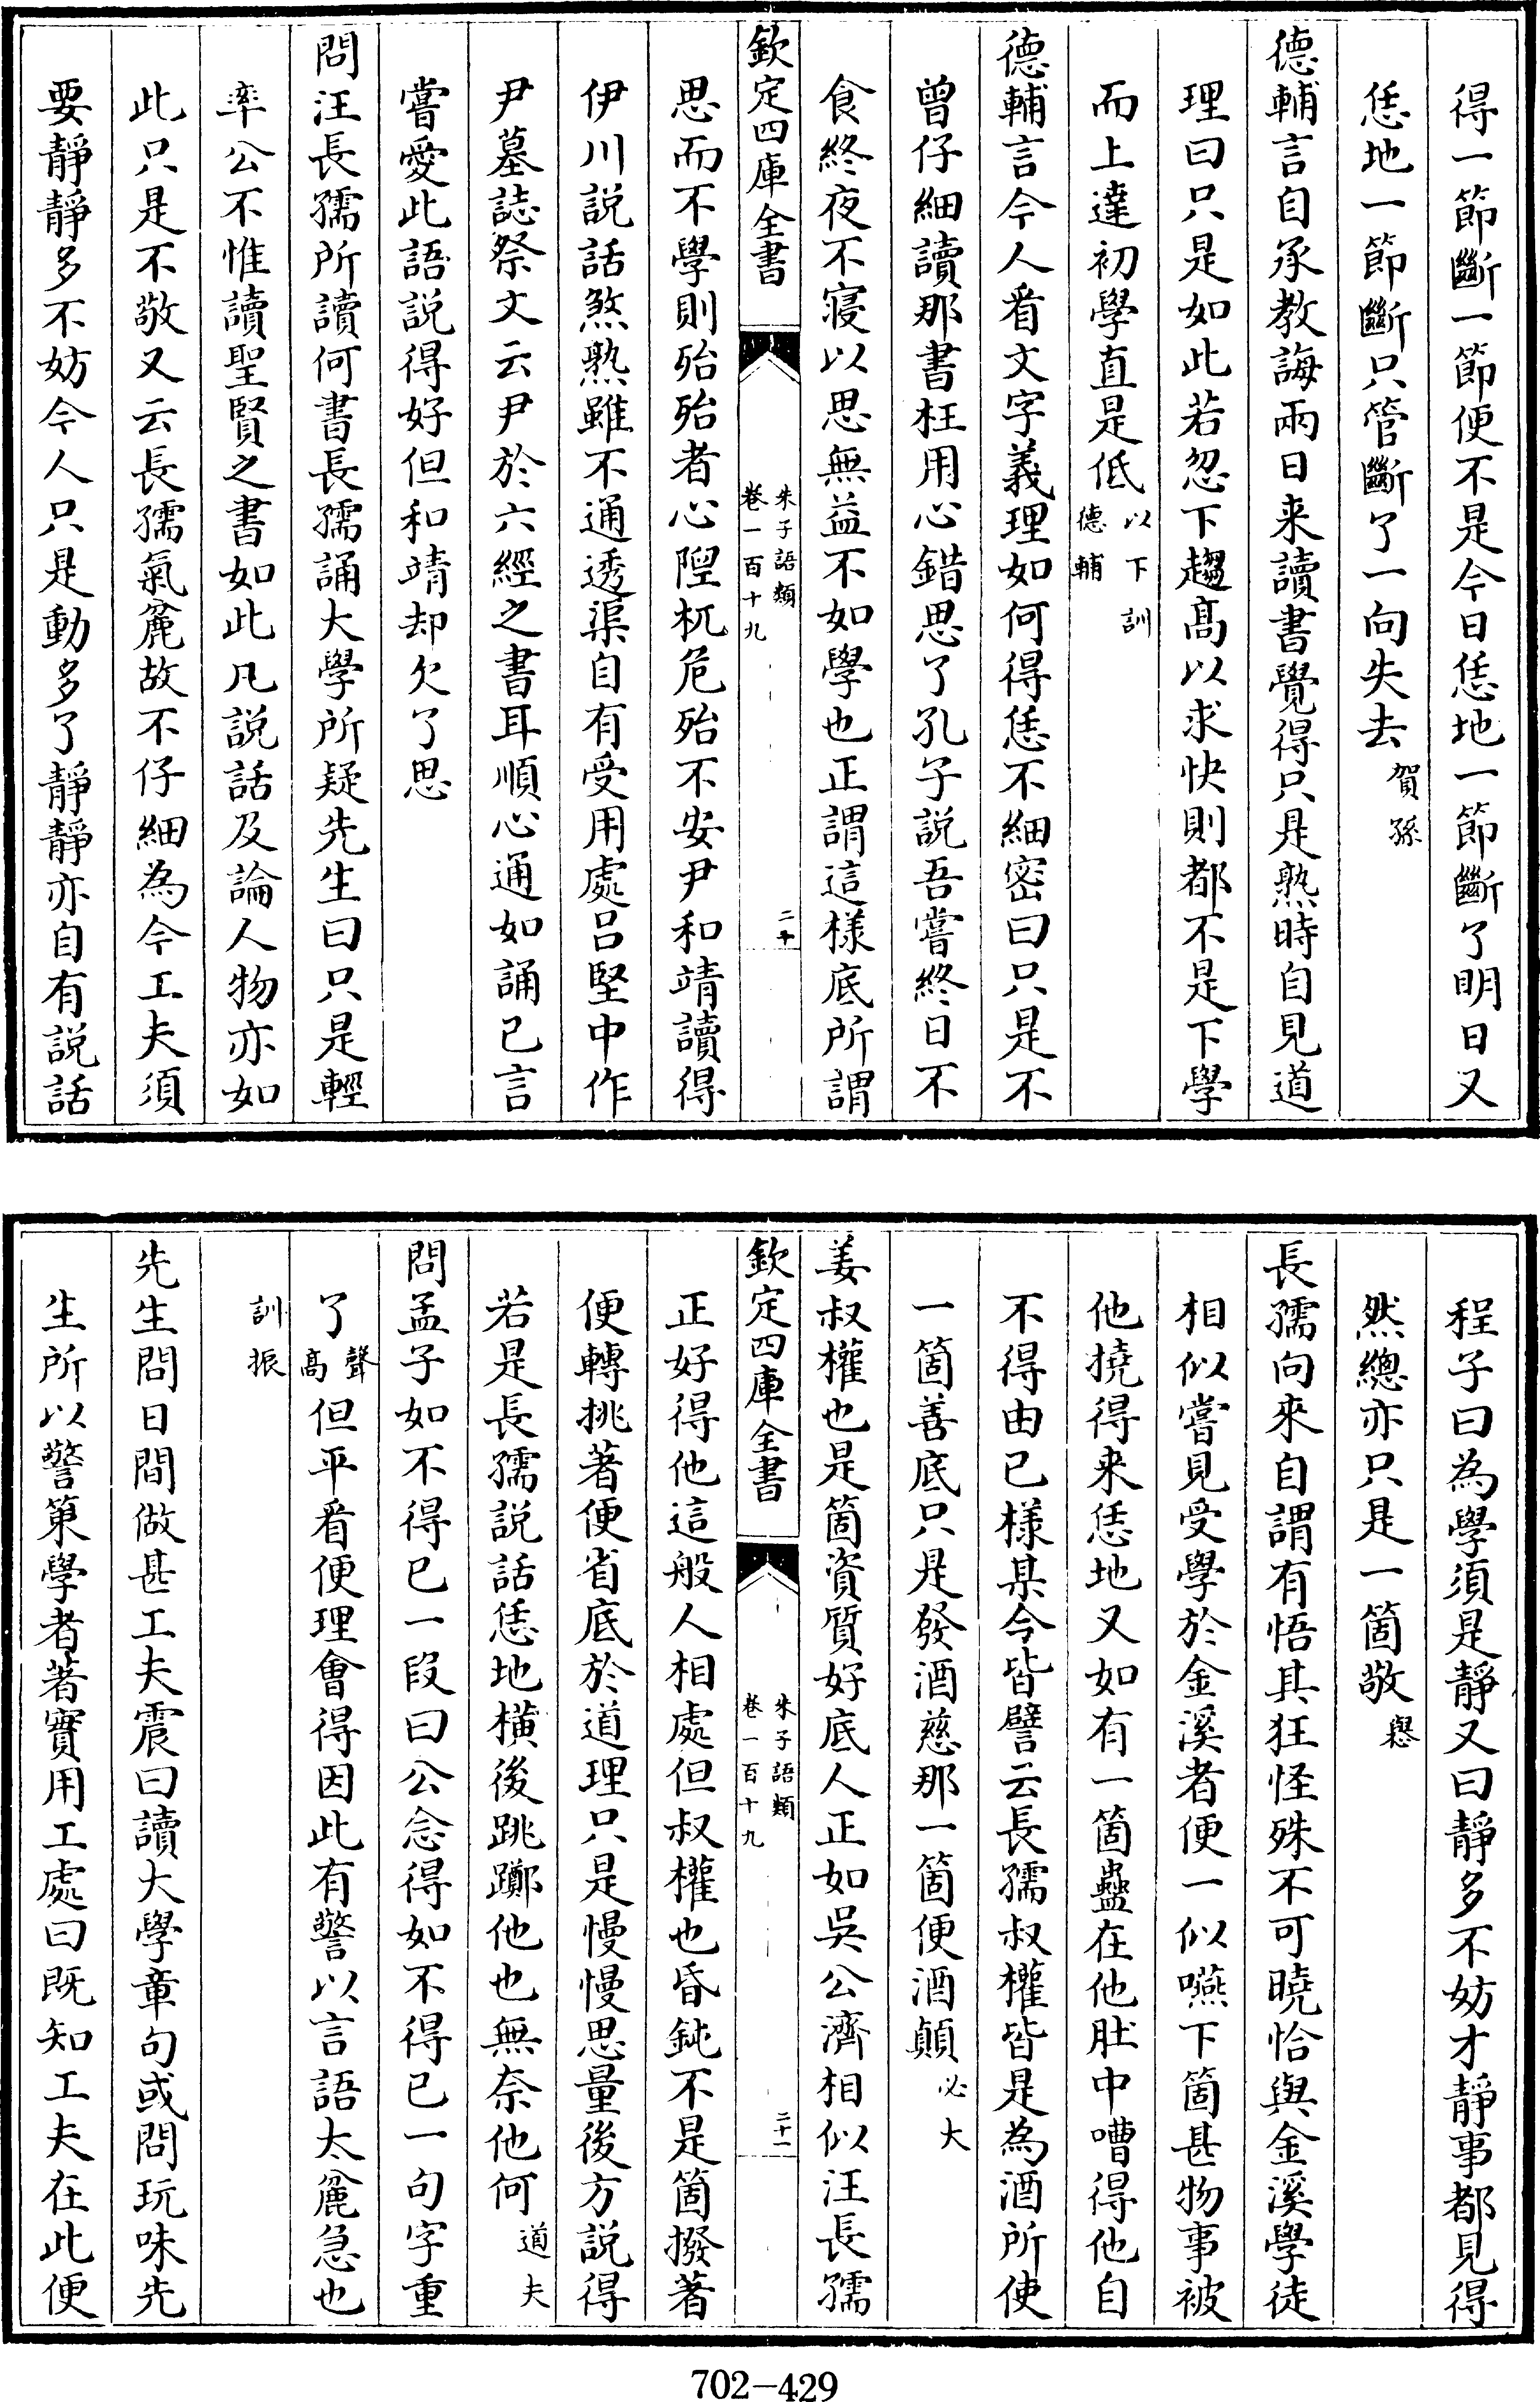 得一節斷一節便不是今日恁地一節斷了明日又
恁地一節斷只管斷了一向失去賀孫
德輔言自承教誨兩日来讀書覺得只是熟時自見道
理曰只是如此若忽下趨髙以求快則都不是下學
而上達初學直是低以下訓德輔
德輔言今人㸔文字義理如何得恁不細密曰只是不
曾仔細讀那書枉用心錯思了孔子説吾嘗終日不
食終夜不寢以思無益不如學也正謂這樣底所謂
欽定四庫全書
朱子語類
卷一百十九
二十
思而不學則殆殆者心隉杌危殆不安尹和靖讀得
伊川説話煞熟雖不通透渠自有受用處吕堅中作
尹墓誌祭文云尹於六經之書耳順心通如誦已言
嘗愛此語説得好但和靖却欠了思
問汪長孺所讀何書長孺誦大學所疑先生曰只是輕
率公不惟讀聖賢之書如此凡説話及論人物亦如
此只是不敬又云長孺氣麄故不仔細為今工夫須
要靜靜多不妨今人只是動多了靜靜亦自有説話
程子曰為學須是靜又曰靜多不妨才靜事都見得
然總亦只是一箇敬㽦
長孺向來自謂有悟其狂怪殊不可曉恰與金溪學徒
相似嘗見受學於金溪者便一似嚥下箇甚物事被
他撓得来恁地又如有一箇蠱在他肚中嘈得他自
不得由已樣某今皆譬云長孺叔權皆是為酒所使
一箇善底只是發酒慈那一箇便酒顛必大
姜叔權也是箇資質好底人正如吳公濟相似汪長孺
欽定四庫全書
朱子語類
卷一百十九
二十一
正好得他這般人相處但叔權也昏鈍不是箇撥著
便轉挑著便省底於道理只是慢慢思量後方説得
若是長孺説話恁地横後跳躑他也無奈他何道夫
問孟子如不得已一段曰公念得如不得已一句字重
了聲髙但平㸔便理會得因此有警以言語太麄急也
訓振
先生問日間做甚工夫震曰讀大學章句或問玩味先
生所以警䇿學者著實用工處曰既知工夫在此便
702-429